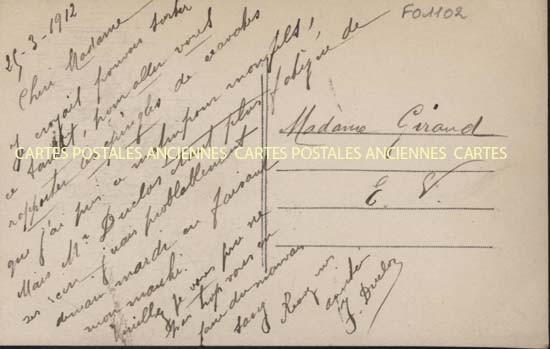 25-3-1912
Cheri Madame
y croyait pouvoir sortir
ce tantôt, pour aller vous
rapporter épingles de cravates
que j'ai pris ce matin pour mon fils,
Mais Mr Duclos étant plus fatigué de
ses j'irai probablement
demain mardi en faisant
mon marché.
Veuillez je vous prie ne
pas trop vous en
faire du mauvais
sang
F. Duclos
FO1102
Madame Giraud
E. V.
CARTES POSTALES ANCIENNES CARTES POSTALES ANCIENNES CARTES